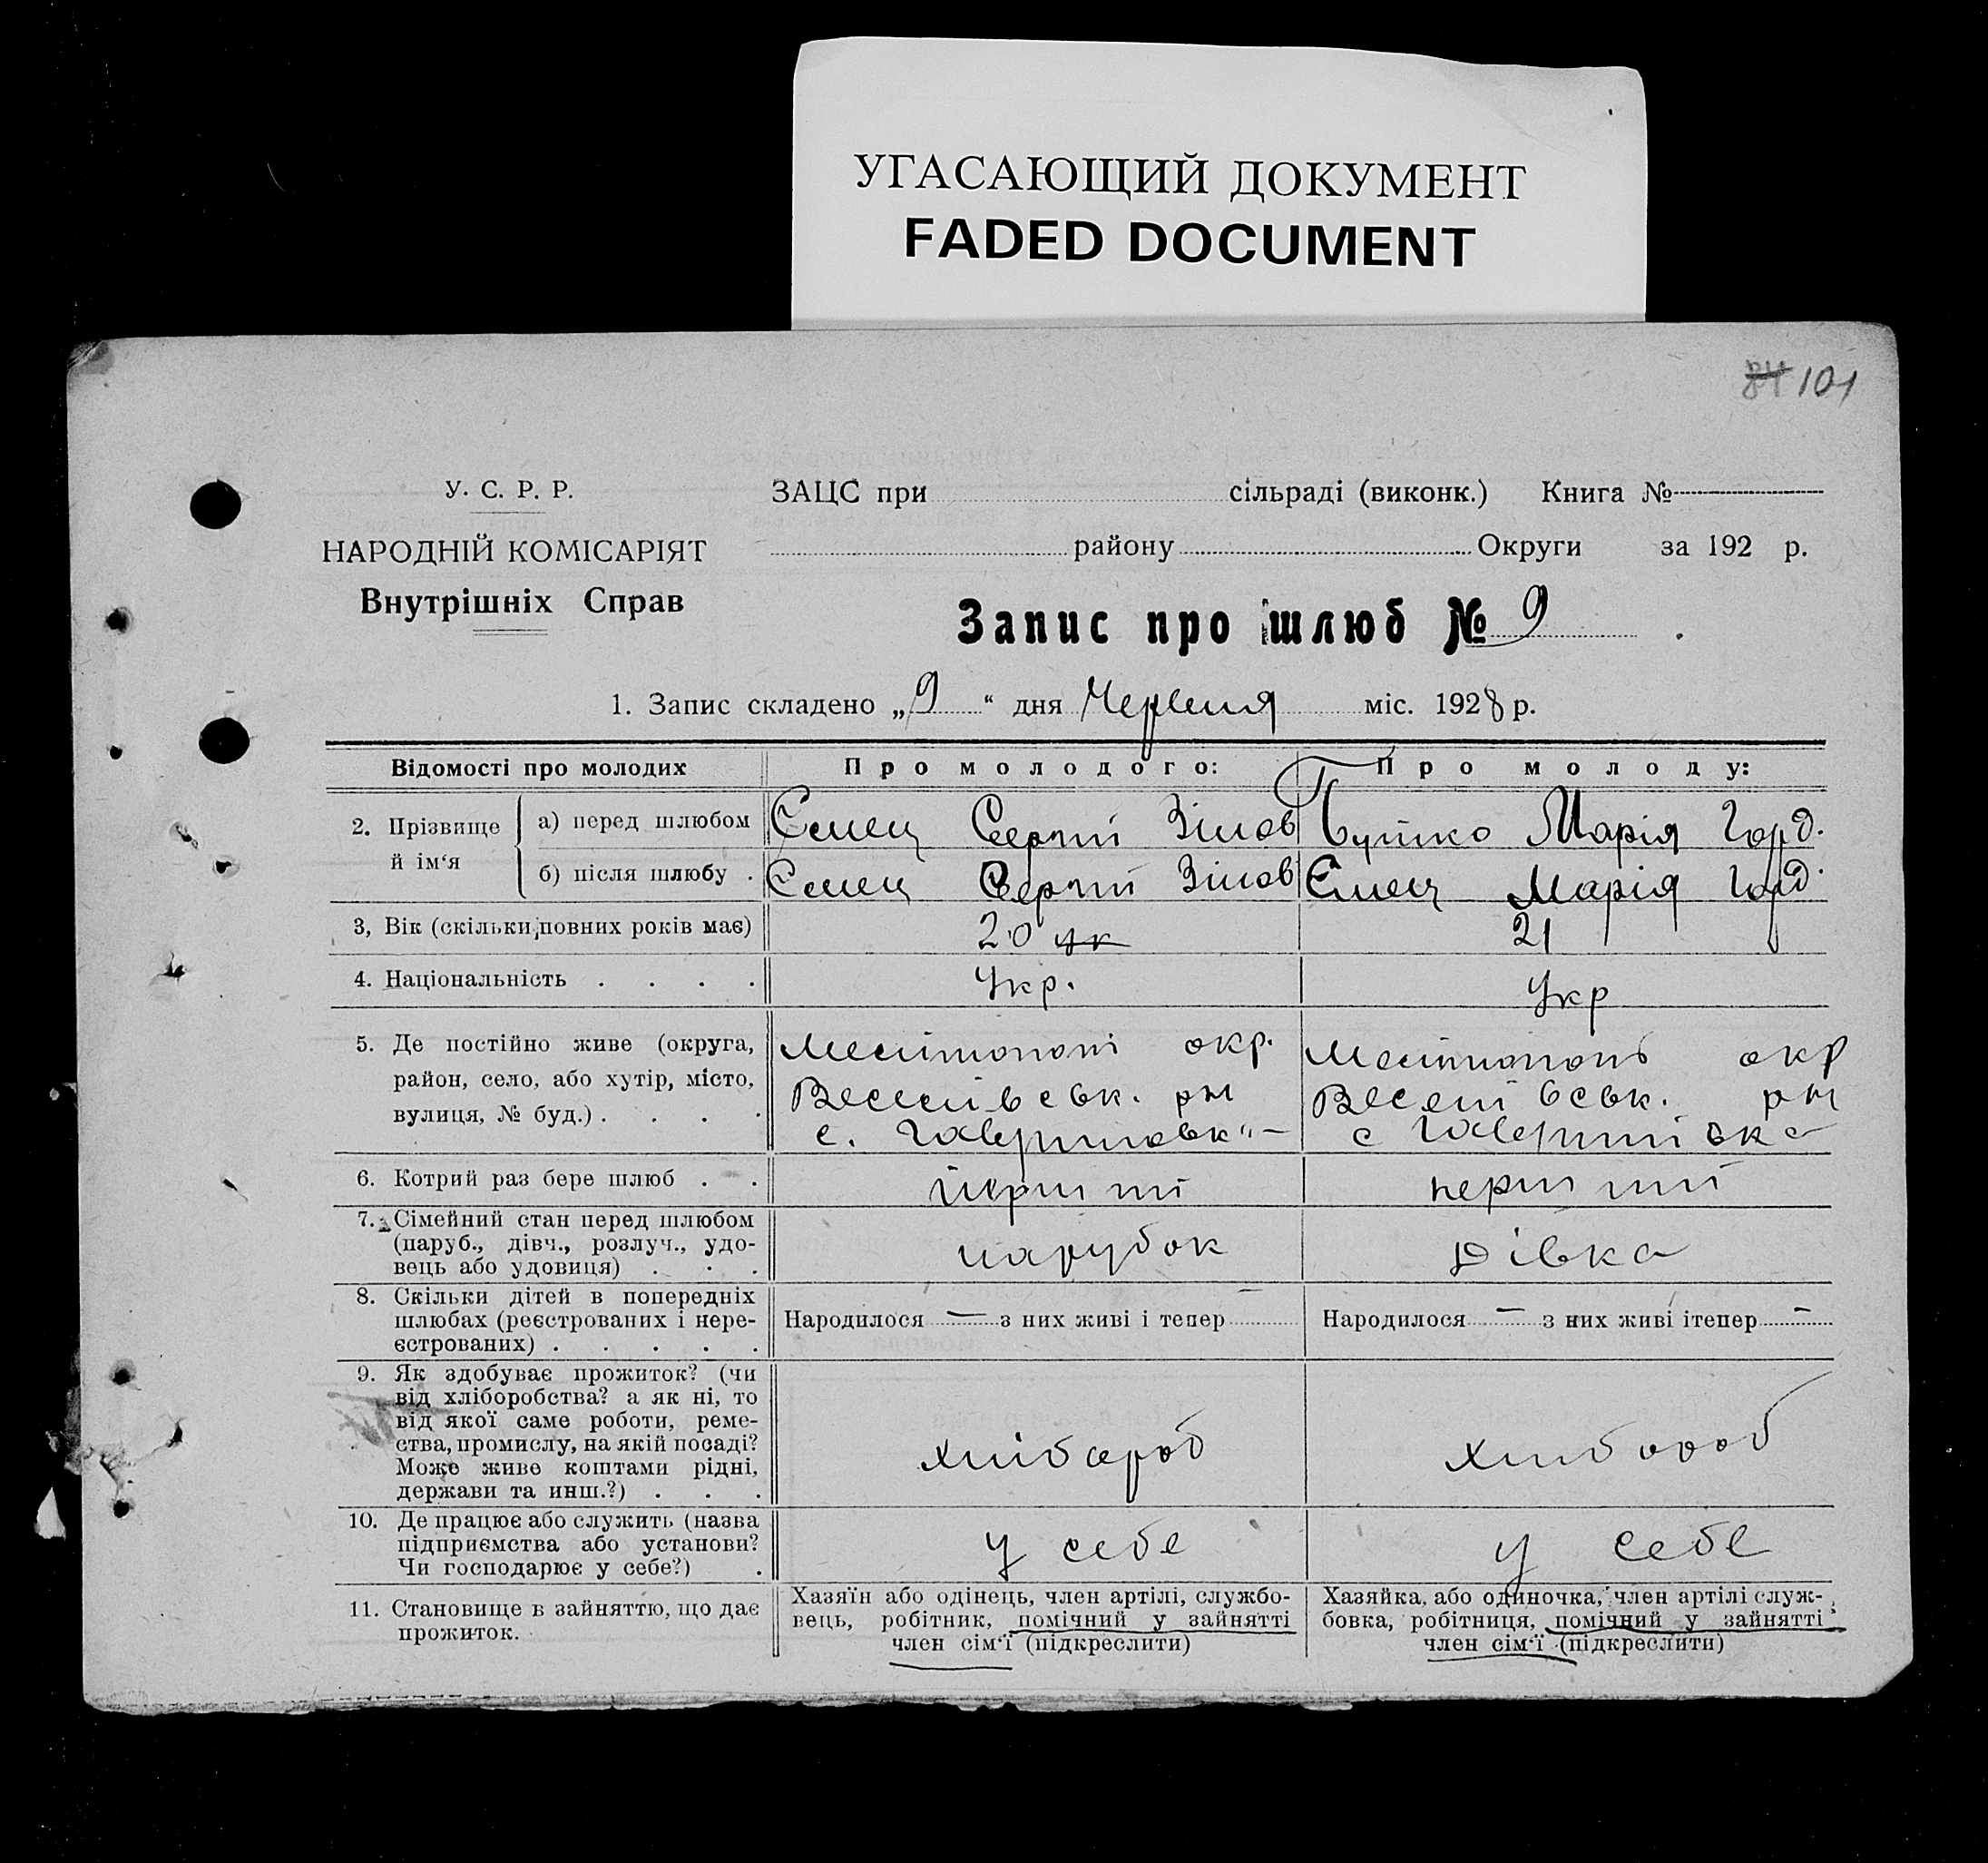 УГАСАЮЩИЙ ДОКУМЕНТ
FADED DOCUMENT
84 101
У. С. Р. Р.
НАРОДНІЙ КОМІСАРІЯТ
Внутрішніх Справ
ЗАЦС при сільраді (виконк.) Книга №
району Округи за 192 р.
Запис про шлюб № 9
1. Запис складено „9“ дня Червня міс. 1928 р.
Відомості про молодих
Про молодого:
Про молоду:
2. Прізвище й ім‘я
а) перед шлюбом
Сергій Зінов
Марія Горд.
б) після шлюбу .
Сергій Зінов
Ємец Марія Горд.
3, Вік (скільки повних років має)
20 ук
21
4. Національність . . . .
Укр.
Укр
5. Де постійно живе (округа,
район, село, або хутір, місто,
вулиця, № буд.) . . . .
Мелітополі окр.
Веселівськ. рн
с.
Мелітополь окр
Веселівськ. рн
с
6. Котрий раз бере шлюб . .
перший
перший
7. Сімейний стан перед шлюбом
(паруб., дівч., розлуч., удо-
вець або удовиця) . . .
парубок
дівка
8. Скільки дітей в попередніх
шлюбах (реєстрованих і нере-
єстрованих) . . . . .
Народилося — з них живі і тепер —
Народилося — з них живі ітепер —
9. Як здобуває прожиток? (чи
від хліборобства? а як ні, то
від якої саме роботи, реме-
ства, промислу, на якій посаді?
Може живе коштами рідні,
держави та инш.?) . . .
хлібороб
хлібороб
10. Де працює або служить (назва
підприємства або установи?
Чи господарює у себе?) .
у себе
у себе
11. Становище в зайняттю, що дає
прожиток.
Хазяїн або одінець, член артілі, службо-
вець, робітник, помічний у зайнятті
член сім‘ї (підкреслити)
Хазяйка, або одиночка, член артілі служ-
бовка, робітниця, помічний у зайнятті
член сім‘ї (підкреслити)